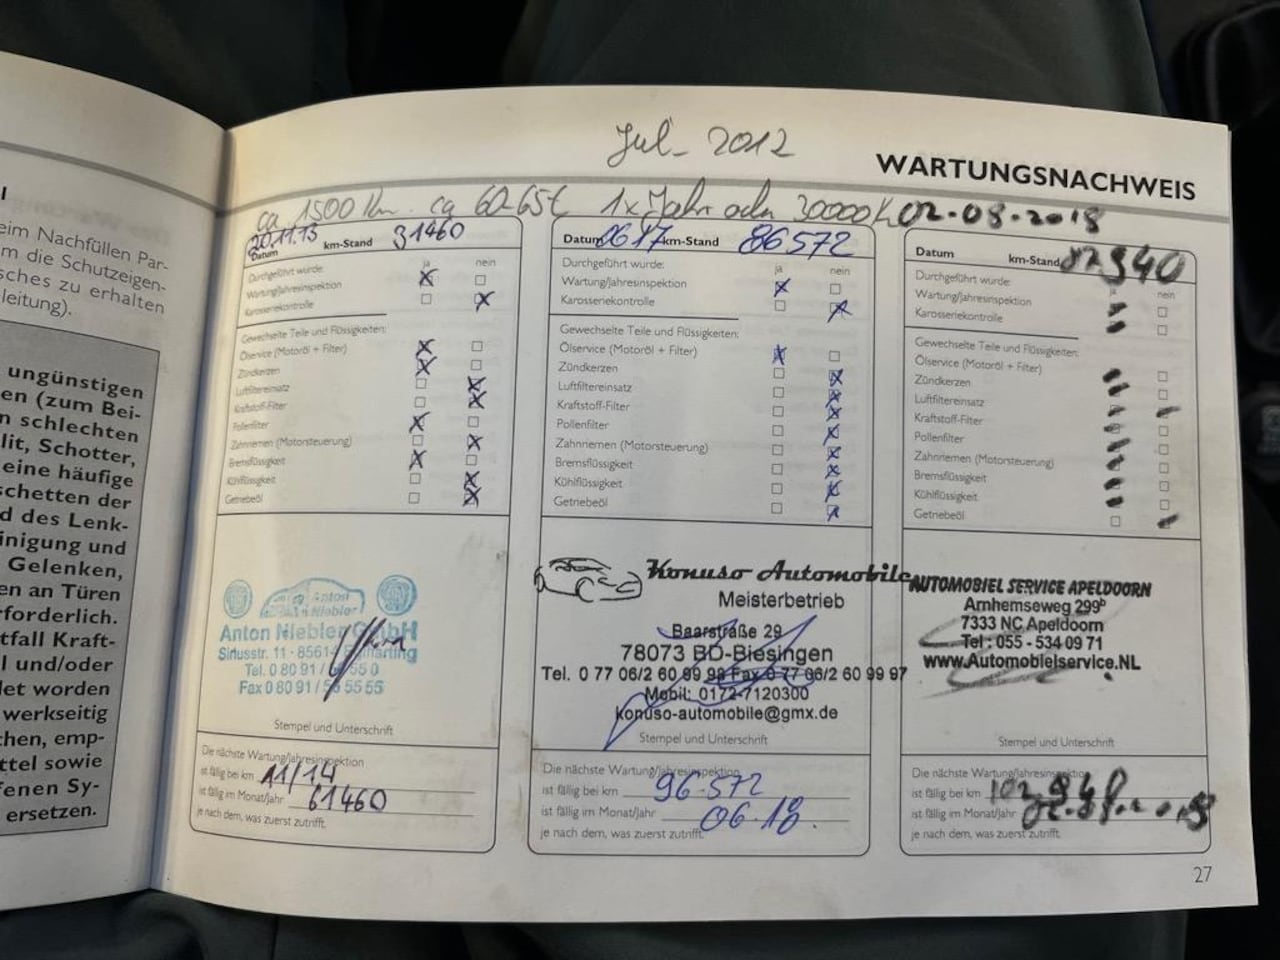 l
eim Nachfüllen Par-
m die Schutzeigen-
sches zu erhalten
leitung).
ungünstigen
en (zum Bei-
n schlechten
lit, Schotter,
eine häufige
schetten der
d des Lenk-
inigung und
Gelenken,
en an Türen
rforderlich.
tfall Kraft-
l und/oder
let worden
werkseitig
chen, emp-
ttel sowie
fenen Sy-
ersetzen.
Jul- 2012
WARTUNGSNACHWEIS
ca 1500 Km. ca 60-65€ 1x Jahr oder 30000K
20.11.13
Datum km-Stand 31460
ja nein
Durchgeführt wurde:
Wartung/Jahresinspektion
Karosseriekontrolle
Gewechselte Teile und Flüssigkeiten:
Ölservice (Motoröl + Filter)
Zündkerzen
Luftfiltereinsatz
Kraftstoff-Filter
Pollenfilter
Zahnriemen (Motorsteuerung)
Bremsflüssigkeit
Kühlflüssigkeit
Getriebeöl
Anton
Niebler
Anton Niebler GmbH
Siriusstr. 11 - 85614
Tel. 0 80 91 / 55 0
Fax 0 80 91 / 55 55
Stempel und Unterschrift
Die nächste Wartung/Jahresinspektion
ist fällig bei km 11/14
ist fällig im Monat/Jahr 61460
je nach dem, was zuerst zutrifft.
Datum 0617 km-Stand 86572
ja nein
Durchgeführt wurde:
Wartung/Jahresinspektion
Karosseriekontrolle
Gewechselte Teile und Flüssigkeiten:
Ölservice (Motoröl + Filter)
Zündkerzen
Luftfiltereinsatz
Kraftstoff-Filter
Pollenfilter
Zahnriemen (Motorsteuerung)
Bremsflüssigkeit
Kühlflüssigkeit
Getriebeöl
Konuso Automobile
Meisterbetrieb
Baarstraße 29
78073 BD-Biesingen
Tel. 0 77 06/2 60 99 98 Fax 0 77 06/2 60 99 97
Mobil: 0172-7120300
konuso-automobile@gmx.de
Stempel und Unterschrift
Die nächste Wartung/Jahresinspektion
ist fällig bei km 96.572
ist fällig im Monat/Jahr 06.18.
je nach dem, was zuerst zutrifft.
02-08-2018
Datum km-Stand
ja nein
Durchgeführt wurde:
Wartung/Jahresinspektion
Karosseriekontrolle
Gewechselte Teile und Flüssigkeiten:
Ölservice (Motoröl + Filter)
Zündkerzen
Luftfiltereinsatz
Kraftstoff-Filter
Pollenfilter
Zahnriemen (Motorsteuerung)
Bremsflüssigkeit
Kühlflüssigkeit
Getriebeöl
AUTOMOBIEL SERVICE APELDOORN
Arnhemseweg 299b
7333 NC Apeldoorn
Tel : 055 - 534 09 71
www.Automobielservice.NL
Stempel und Unterschrift
Die nächste Wartung/Jahresinspektion
ist fällig bei km
ist fällig im Monat/Jahr
je nach dem, was zuerst zutrifft.
27